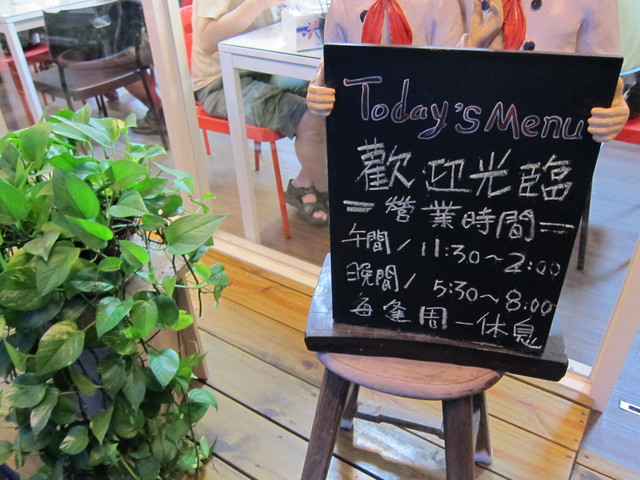 Today's Menu
歡迎光臨
=營業時間=
午間/11:30~2:00
晚間/5:30~8:00
每逢周一休息